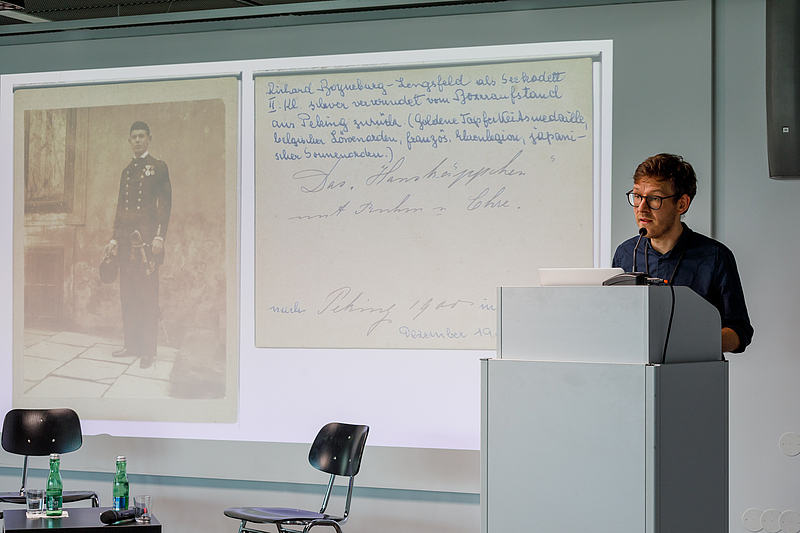 Richard Boyneburg-Lengsfeld als Seekadett
II. Kl. schwer verwundet vom Boxeraufstand
aus Peking zurück. (Goldene Tapferkeitsmedaille,
belgischer Löwenorden, französ. Ehrenlegion, japani-
scher Sonnenorden.)
"Das Hanskäppchen"
mit Ruhm u. Ehre.
nach Peking 1900 in
Dezember 19